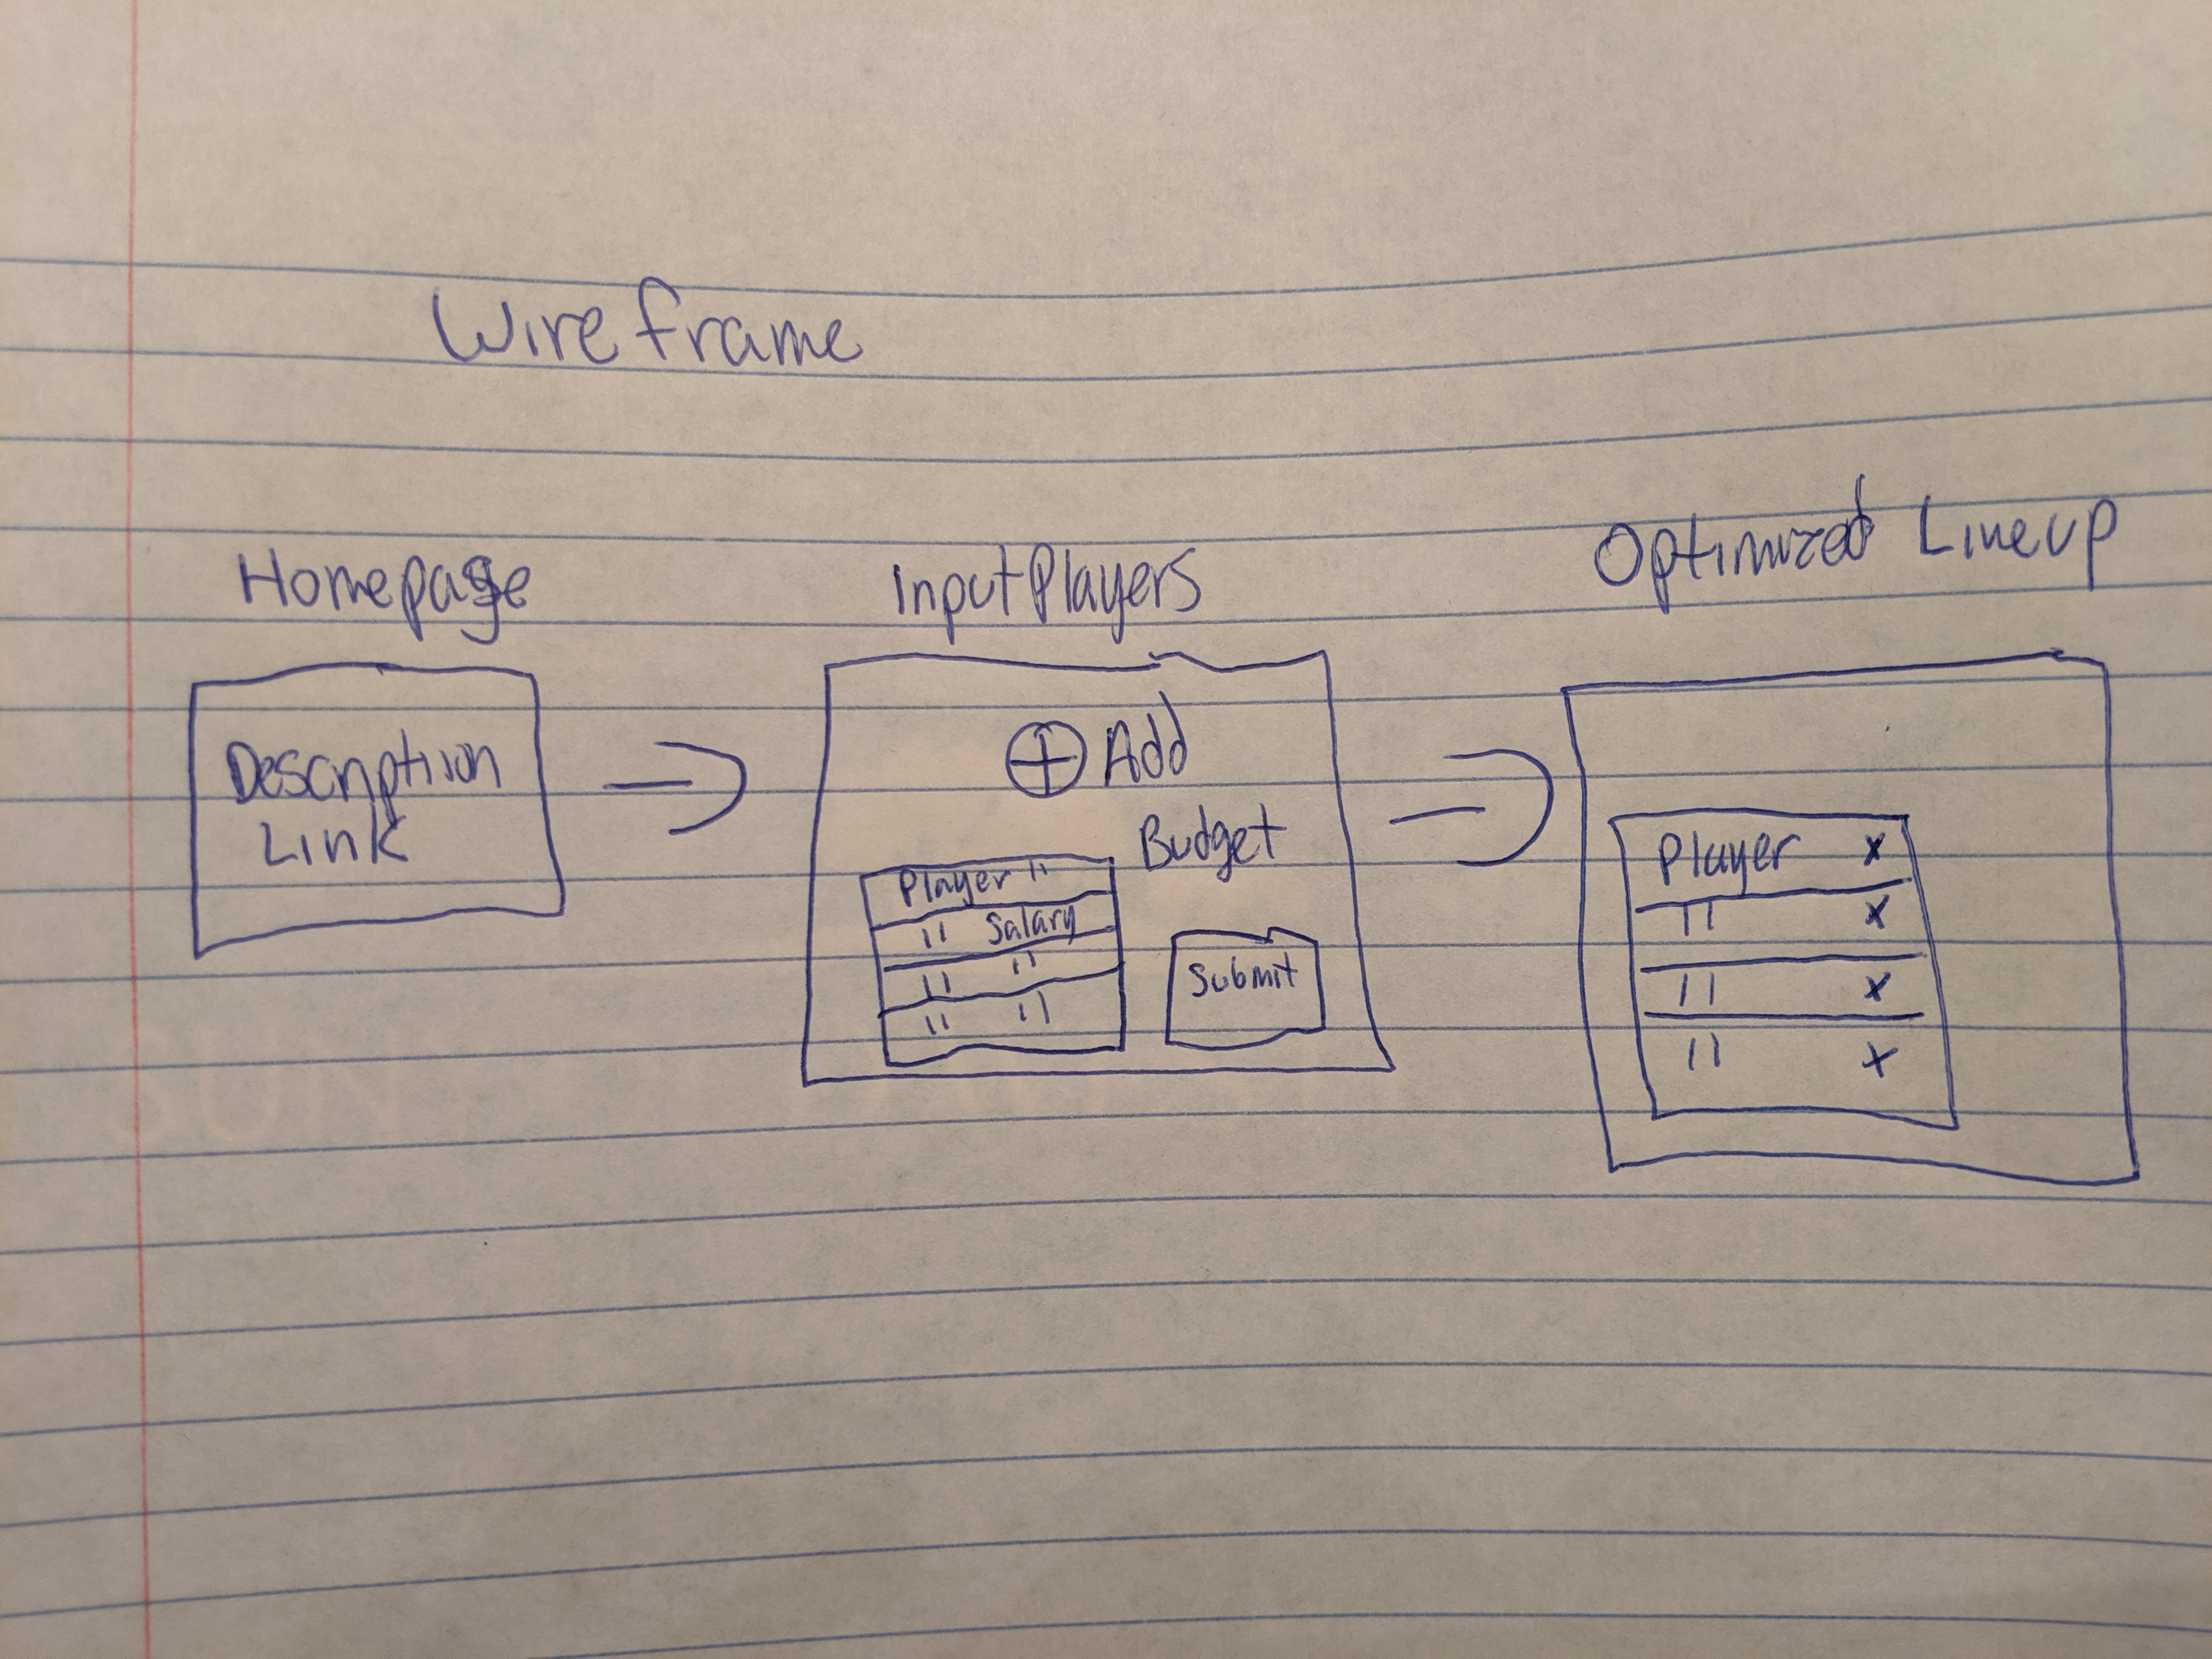 Wireframe
Homepage
Description
Link
Input Players
⊕ Add
Budget
Player "
" Salary
" "
" "
Submit
Optimized Lineup
Player x
" x
" x
" x